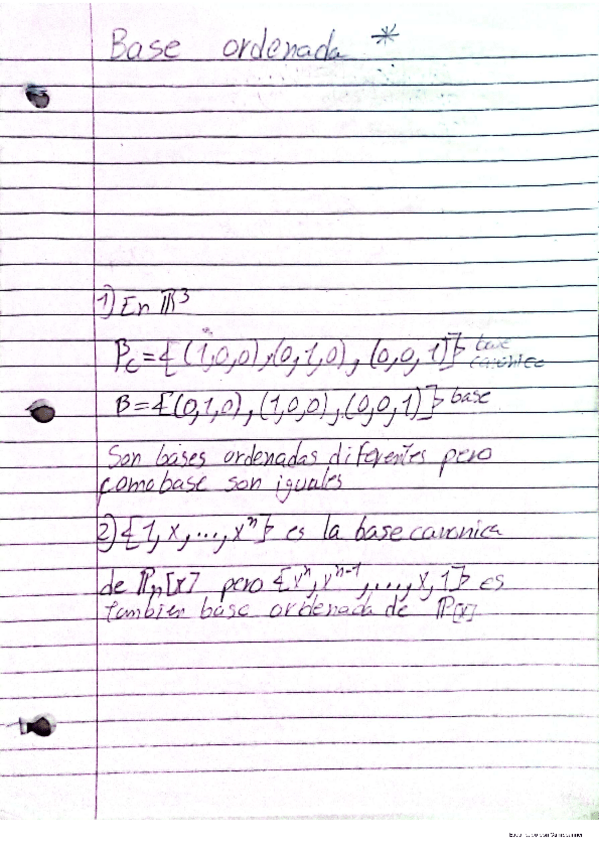 Base ordenada *
1) En ℝ³
β_c = {(1,0,0),(0,1,0),(0,0,1)} base canonica
β = {(0,1,0),(1,0,0),(0,0,1)} base
Son bases ordenadas diferentes pero
como base son iguales
2) {1,x,...,xⁿ} es la base canonica
de ℙₙ[x] pero {xⁿ,xⁿ⁻¹,...,x,1} es
tambien base ordenada de ℙ[x]